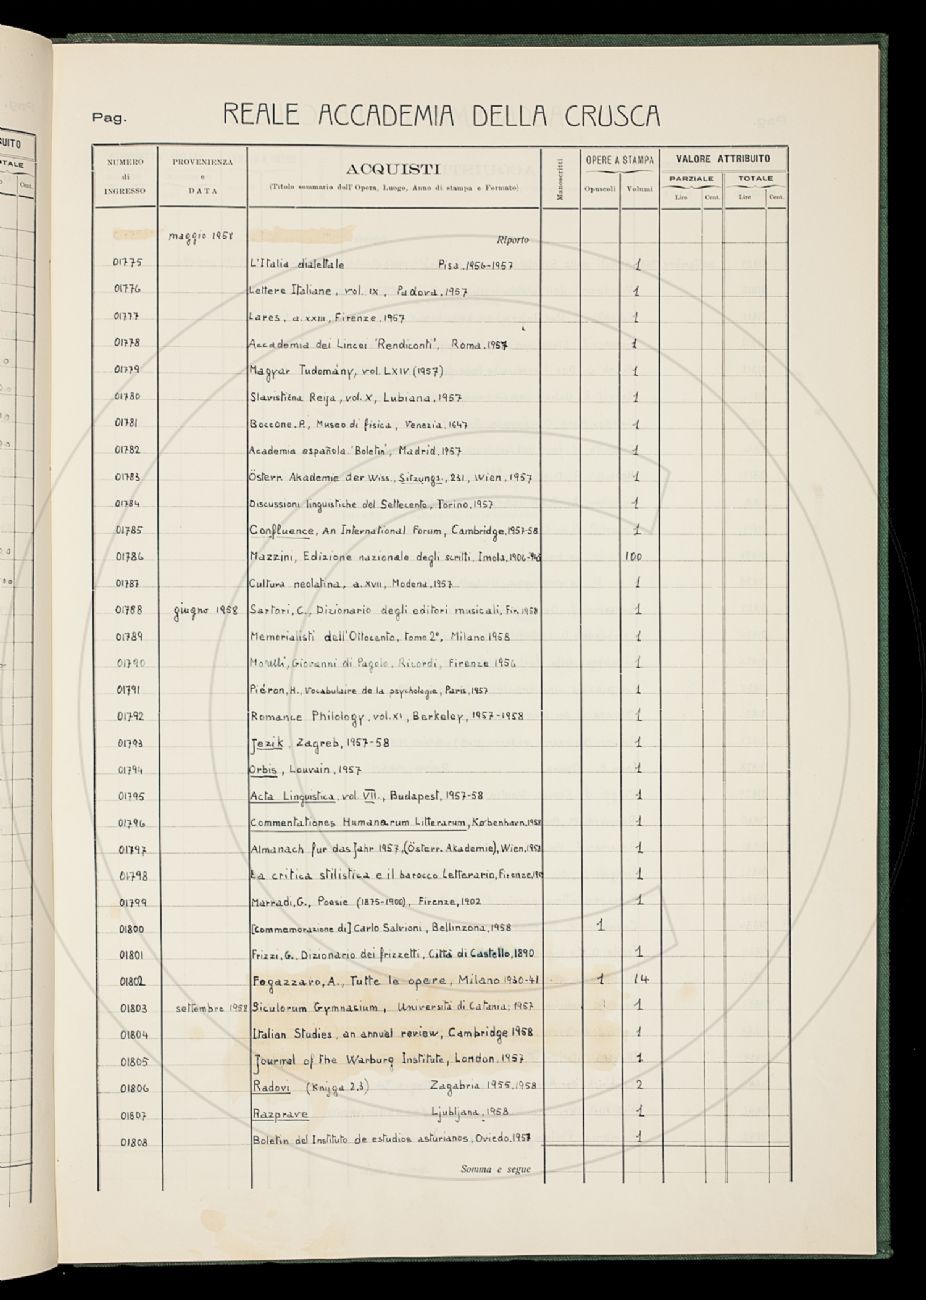 Pag. REALE ACCADEMIA DELLA CRUSCA
NUMERO di INGRESSO
PROVENIENZA e DATA
ACQUISTI
(Titolo sommario dell'Opera, Luogo, Anno di stampa e Formato)
Manoscritti
OPERE A STAMPA
Opuscoli Volumi
VALORE ATTRIBUITO
PARZIALE TOTALE
Lire Cent. Lire Cent.
maggio 1958 Riporto
01775 L'Italia dialettale Pisa, 1956-1957 1
01776 Lettere Italiane, vol. IX, Padova, 1957 1
01777 Lares, a. XXIII, Firenze, 1957 1
01778 Accademia dei Lincei 'Rendiconti', Roma, 1957 1
01779 Magyar Tudomány, vol. LXIV (1957) 1
01780 Slavistična Revija, vol. X, Lubiana, 1957 1
01781 Boccone P., Museo di fisica, Venezia, 1647 1
01782 Academia española 'Boletin', Madrid, 1957 1
01783 Österr. Akademie der Wiss., Sitzungs., 231, Wien, 1957 1
01784 Discussioni linguistiche del Settecento, Torino, 1957 1
01785 Confluence, An International Forum, Cambridge, 1957-58 1
01786 Mazzini, Edizione nazionale degli scritti, Imola, 1906-943 100
01787 Cultura neolatina, a. XVII, Modena, 1957 1
01788 giugno 1958 Sartori, C., Dizionario degli editori musicali, Fir. 1958 1
01789 Memorialisti dell'Ottocento, tomo 2°, Milano 1958 1
01790 Morelli, Giovanni di Pagolo, Ricordi, Firenze 1956 1
01791 Piéron, H., Vocabulaire de la psychologie, Paris, 1957 1
01792 Romance Philology, vol. XI, Berkeley, 1957-1958 1
01793 Jezik, Zagreb, 1957-58 1
01794 Orbis, Louvain, 1957 1
01795 Acta Linguistica, vol. VII., Budapest, 1957-58 1
01796 Commentationes Humanarum Litterarum, København, 1958 1
01797 Almanach fur das Jahr 1957, (Österr. Akademie), Wien, 1958 1
01798 La critica stilistica e il barocco letterario, Firenze, 1
01799 Marradi, G., Poesie (1875-1900), Firenze, 1902 1
01800 [Commemorazione di] Carlo Salvioni, Bellinzona, 1958 1
01801 Frizzi, G., Dizionario dei frizzetti, Città di Castello, 1890 1
01802 Fogazzaro, A., Tutte le opere, Milano 1930-41 1 14
01803 settembre 1958 Siculorum Gymnasium, Università di Catania, 1957 1
01804 Italian Studies, an annual review, Cambridge 1958 1
01805 Journal of the Warburg Institute, London, 1957 1
01806 Radovi (Knjiga 2, 3) Zagabria 1955, 1958 2
01807 Razprave Ljubljana, 1958 1
01808 Boletin del Instituto de estudios asturianos, Oviedo, 1957 1
Somma e segue